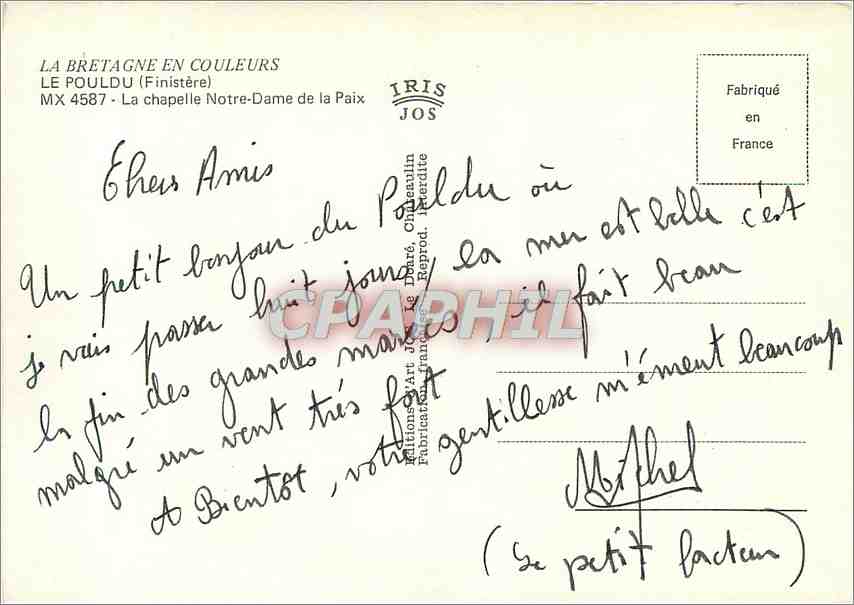 LA BRETAGNE EN COULEURS
LE POULDU (Finistère)
MX 4587 - La chapelle Notre-Dame de la Paix
IRIS
JOS
Fabriqué
en
France
Editions d'Art JOS Le Doaré, Châteaulin
Fabrication française - Reprod. interdite
CPAPHIL
Chers Amis
Un petit bonjour du Pouldu où
je vais passer huit jours, la mer est belle c'est
la fin des grandes marées, il fait beau
malgré un vent trés fort
A Bientôt, votre gentillesse m'ément beaucoup
Michel
(Le petit facteur)